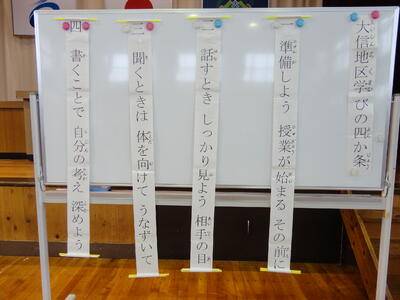 大信地区学びの四か条
一 準備しよう 授業が始まる その前に
二 話すとき しっかり見よう 相手の目
三 聞くときは 体を向けて うなずいて
四 書くことで 自分の考え 深めよう